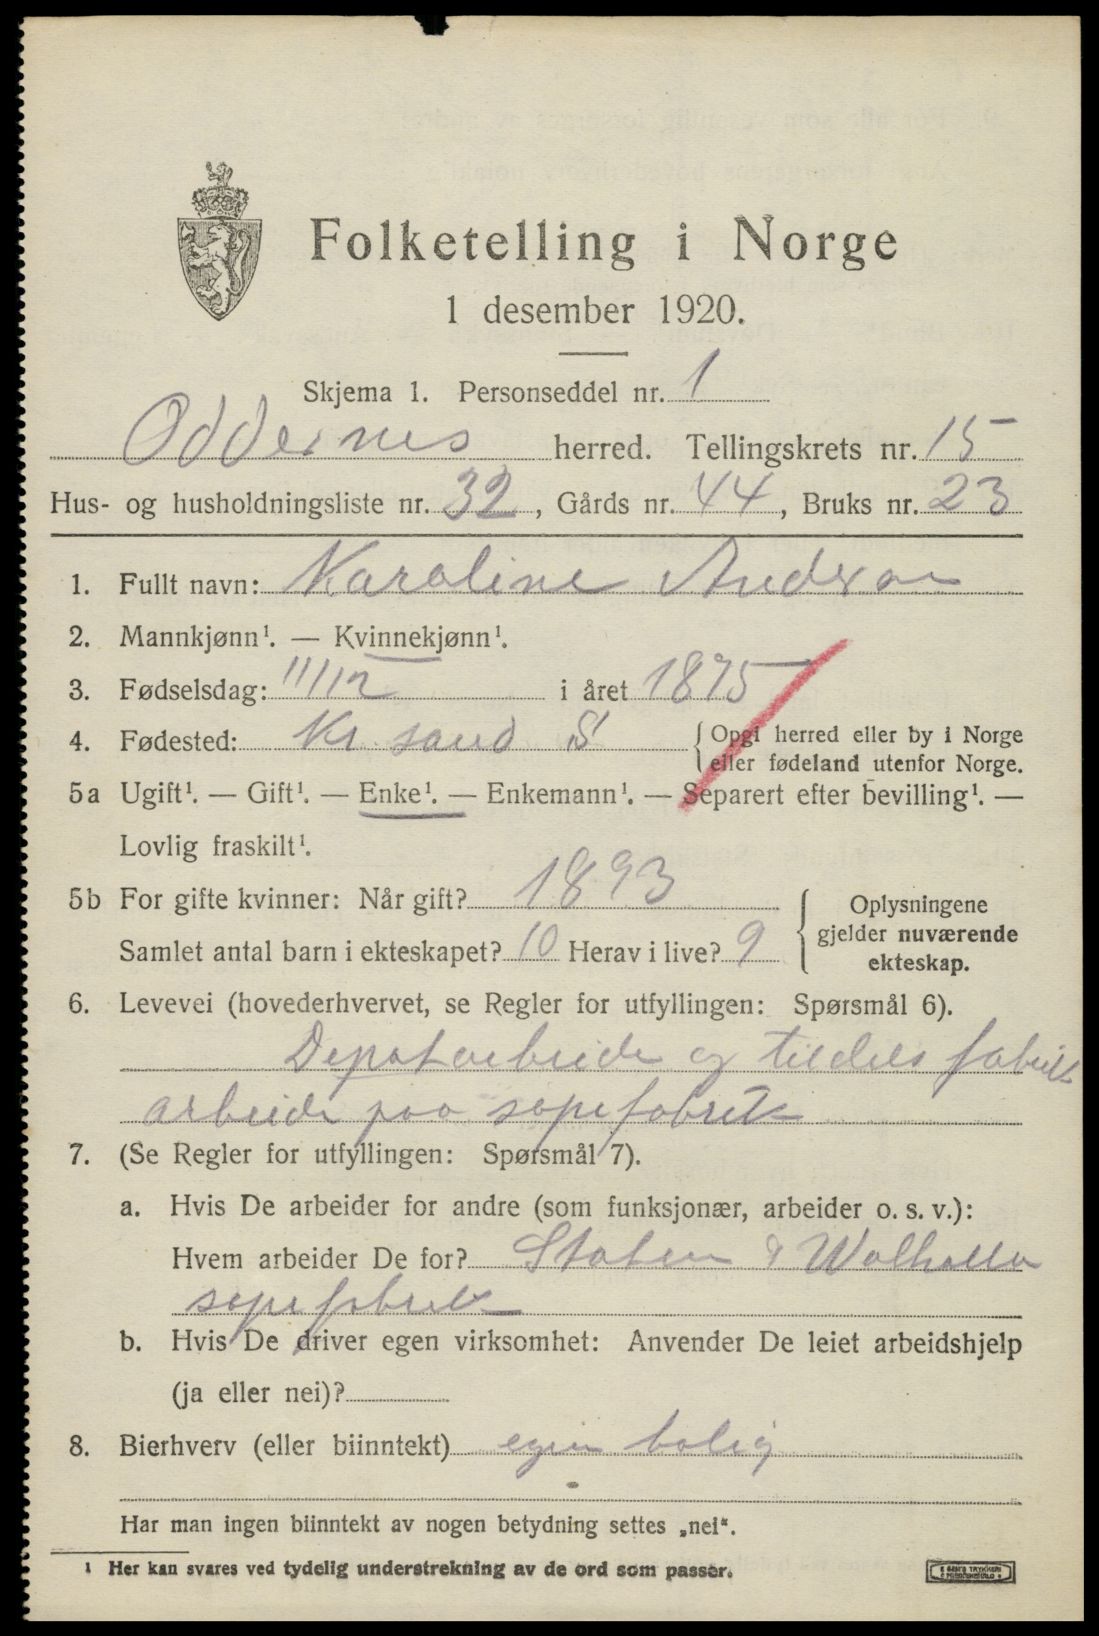 Folketelling i Norge
1 desember 1920.
Skjema 1. Personseddel nr. 1
Oddernes herred. Tellingskrets nr. 15
Hus- og husholdningsliste nr. 32, Gårds nr. 44, Bruks nr. 23
1. Fullt navn: Karoline Anderson
2. Mannkjønn¹. — Kvinnekjønn¹.
3. Fødselsdag: 11/12 i året 1875
4. Fødested: Kr. sand S { Opgi herred eller by i Norge
eller fødeland utenfor Norge.
5a Ugift¹. — Gift¹. — Enke¹. — Enkemann¹. — Separert efter bevilling¹. —
Lovlig fraskilt¹.
5b For gifte kvinner: Når gift? 1893
Samlet antal barn i ekteskapet? 10 Herav i live? 9
{ Oplysningene
gjelder nuværende
ekteskap.
6. Levevei (hovederhvervet, se Regler for utfyllingen: Spørsmål 6).
Depotarbeide og tildels fabrik
arbeide paa sæpefabrik
7. (Se Regler for utfyllingen: Spørsmål 7).
a. Hvis De arbeider for andre (som funksjonær, arbeider o. s. v.):
Hvem arbeider De for? Staten & Walhalla
sæpefabrik
b. Hvis De driver egen virksomhet: Anvender De leiet arbeidshjelp
(ja eller nei)?
8. Bierhverv (eller biinntekt) egen bolig
Har man ingen biinntekt av nogen betydning settes „nei".
¹ Her kan svares ved tydelig understrekning av de ord som passer.